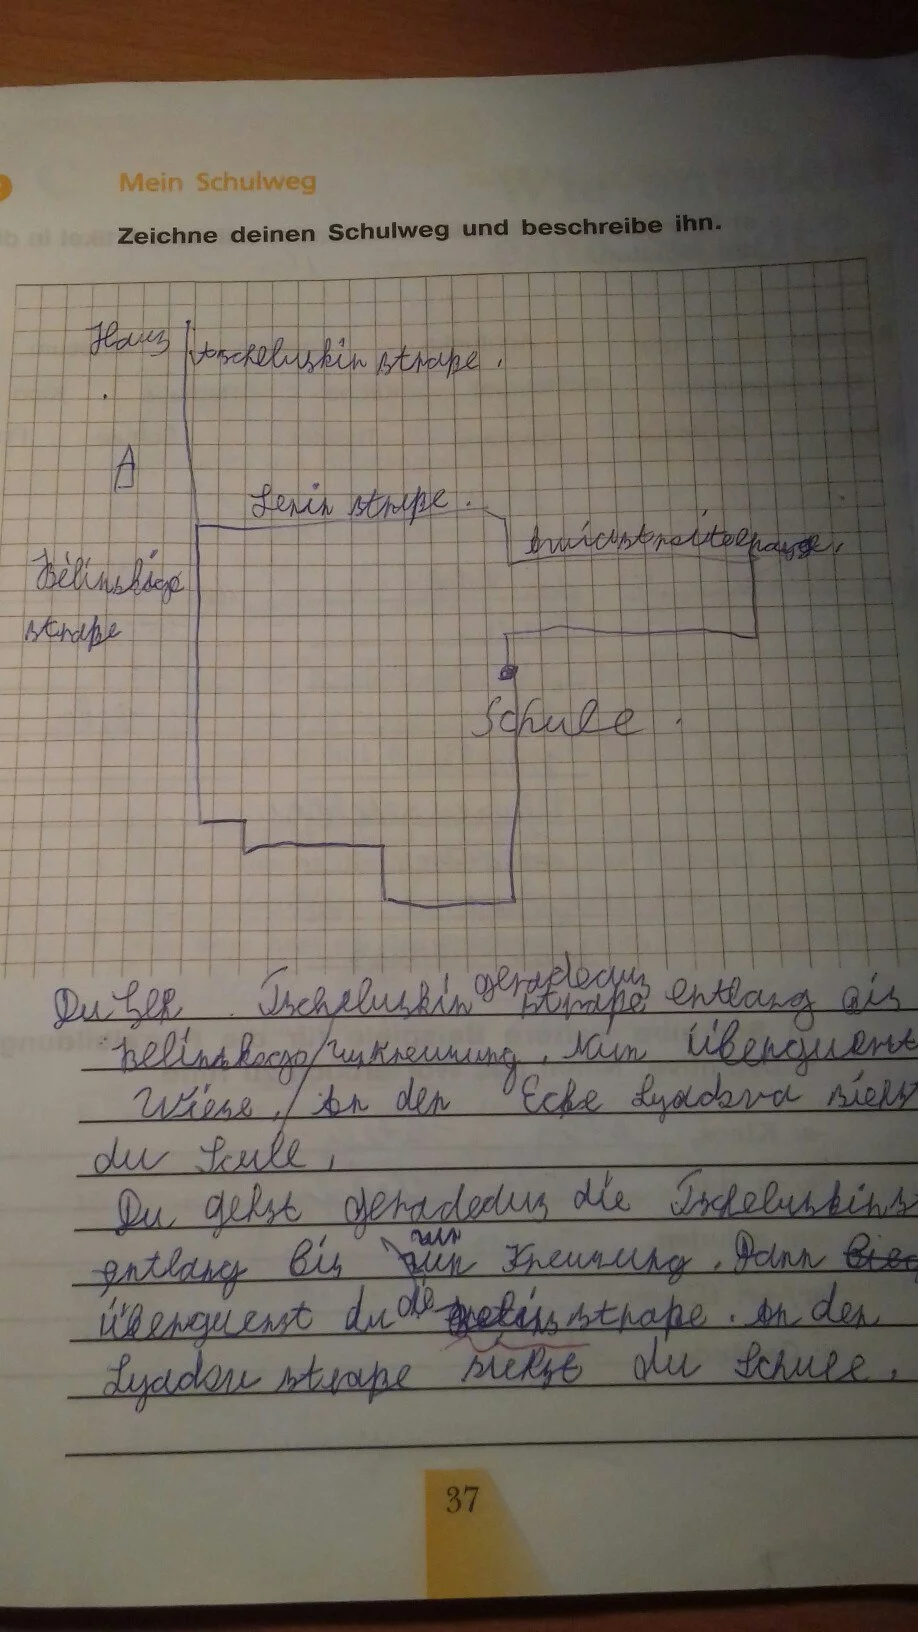 Mein Schulweg
Zeichne deinen Schulweg und beschreibe ihn.
Haus
Tscheluskin straße.
A
Lenin straße.
Belinskogo
straße
Schule.
geradeaus
Tscheluskin straße entlang bis
Belinskogo/ Kreuzung. Nun überquerst
Wiese, An der Ecke Lyadova siehst
du Scule,
Du gehst geradeaus die Tscheluskins
zur
entlang bis Kreuzung. Dann
überquerst du die straße. An der
Lyadov straße siehst du Schule.
37